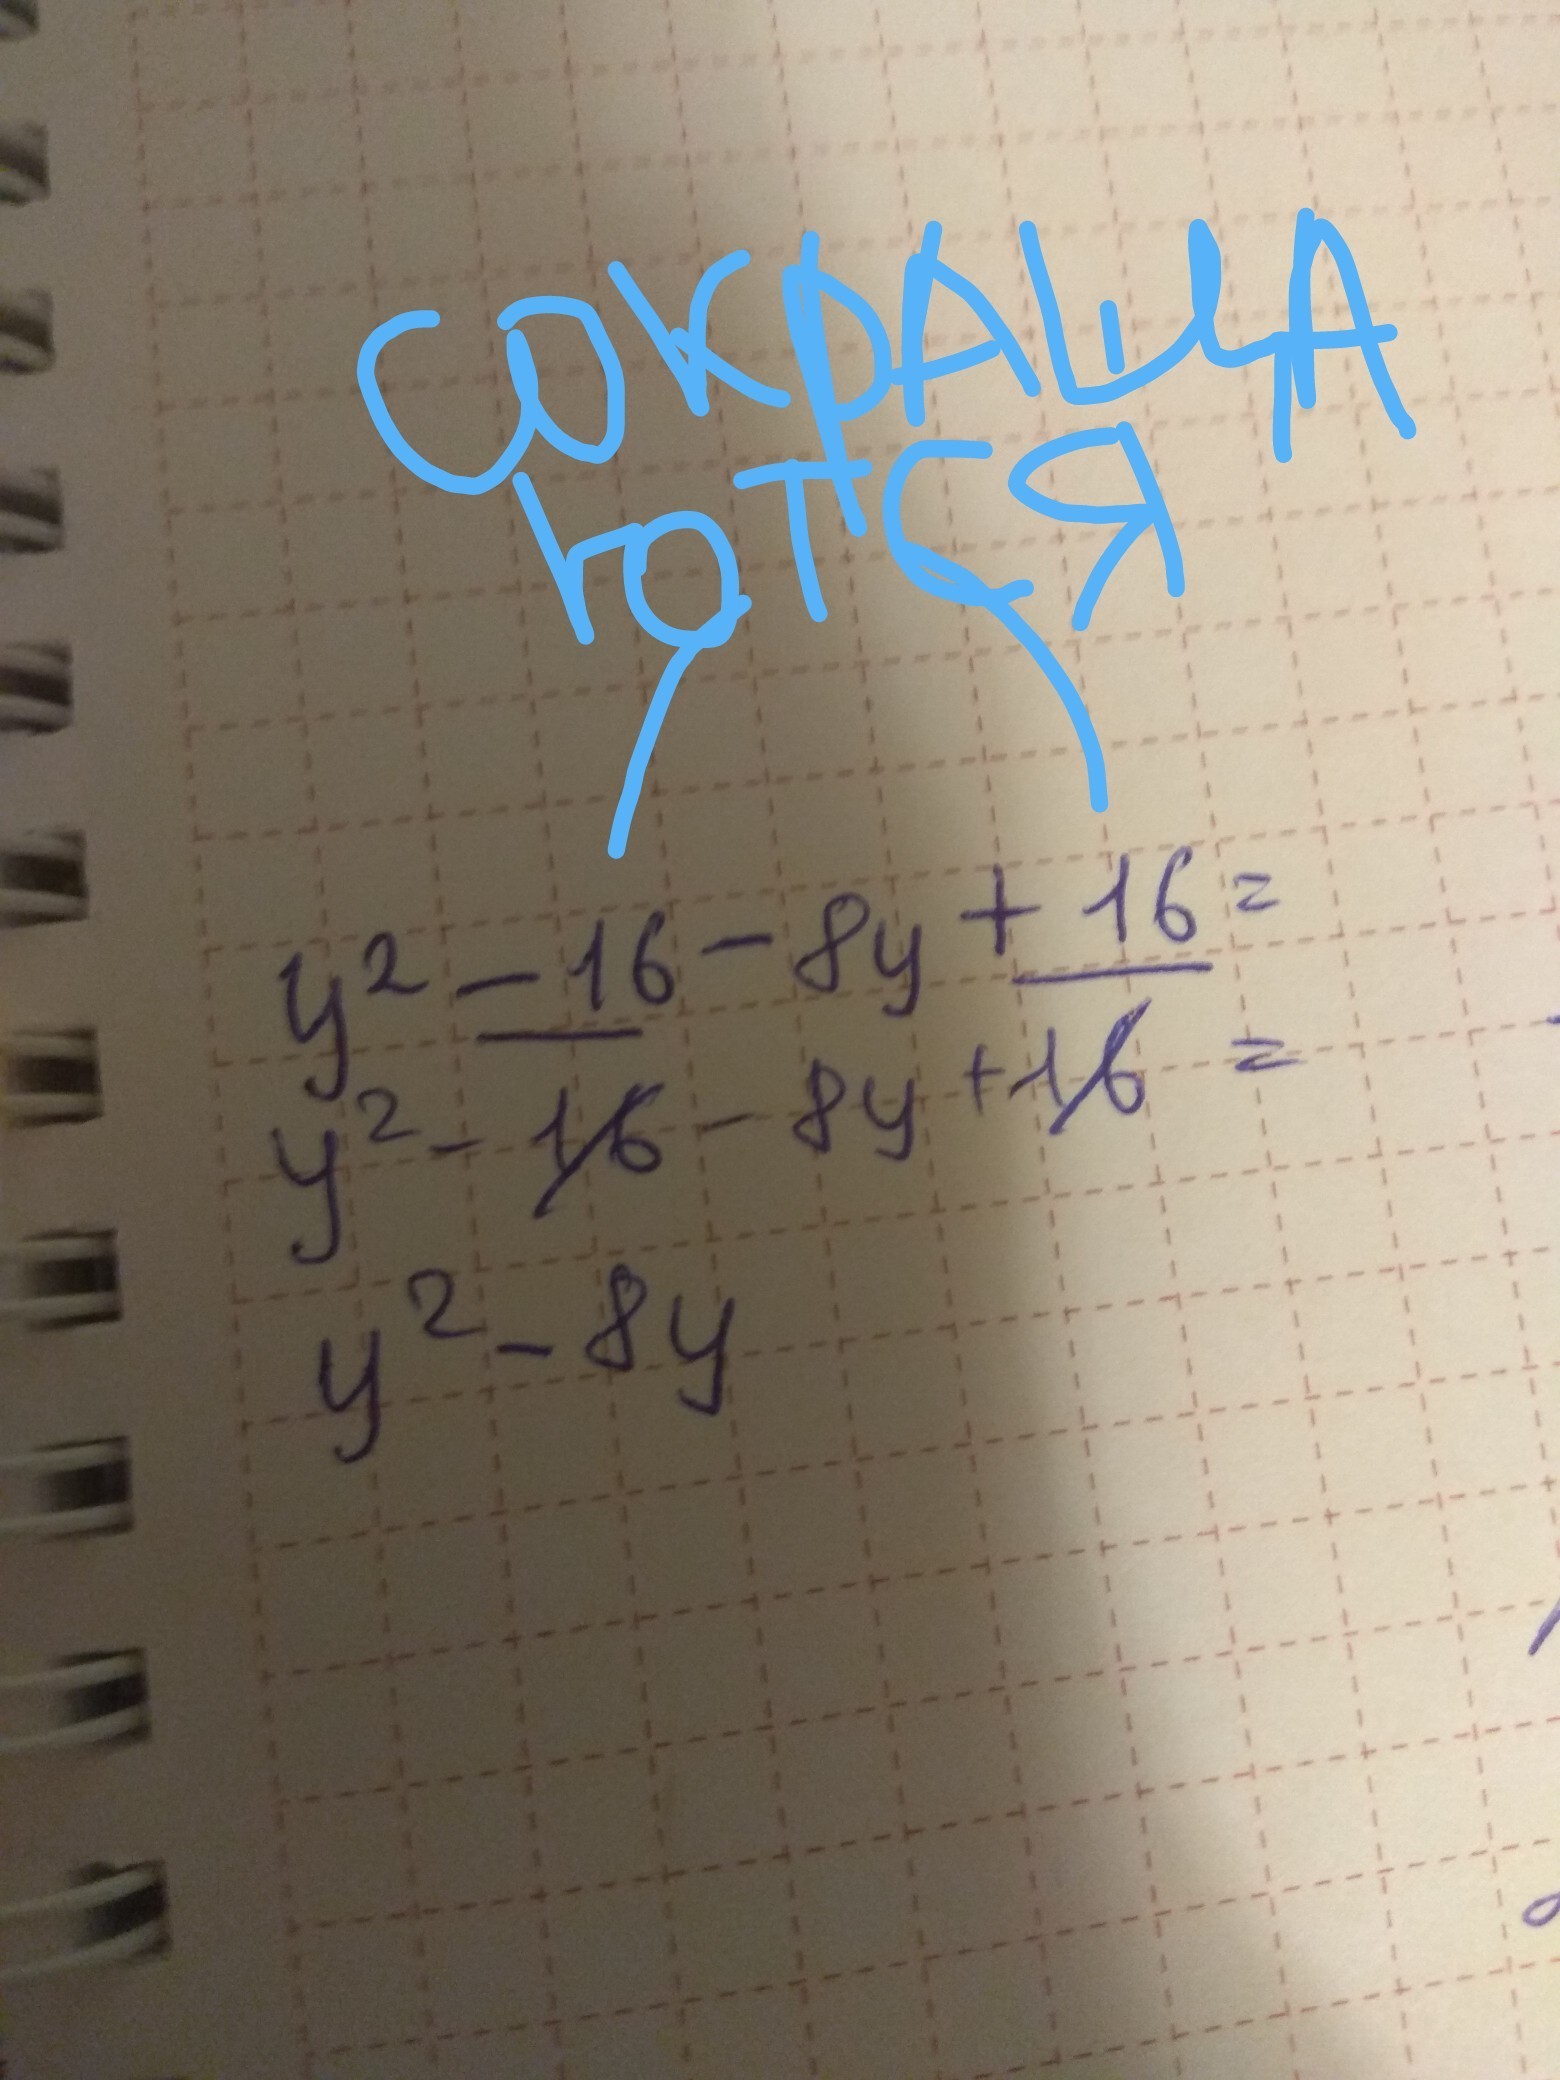 СОКРАЩА
ЮТСЯ
y² - 16 - 8y + 16 =
y² - 16 - 8y + 16 =
y² - 8y